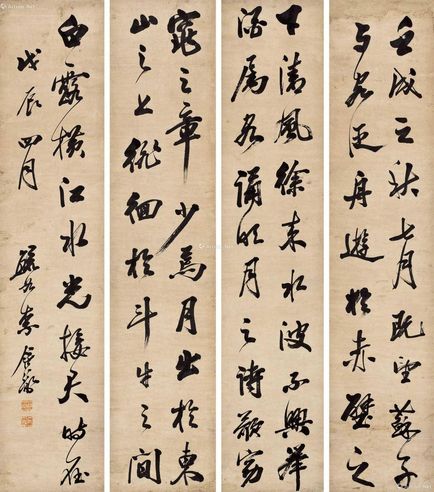 壬戌之秋七月既望蘇子
与客泛舟遊於赤壁之
下清風徐来水波不興舉
酒属客誦明月之詩歌窈
窕之章少焉月出於東
山之上徘徊於斗牛之間
白露横江水光接天時在
戊辰四月